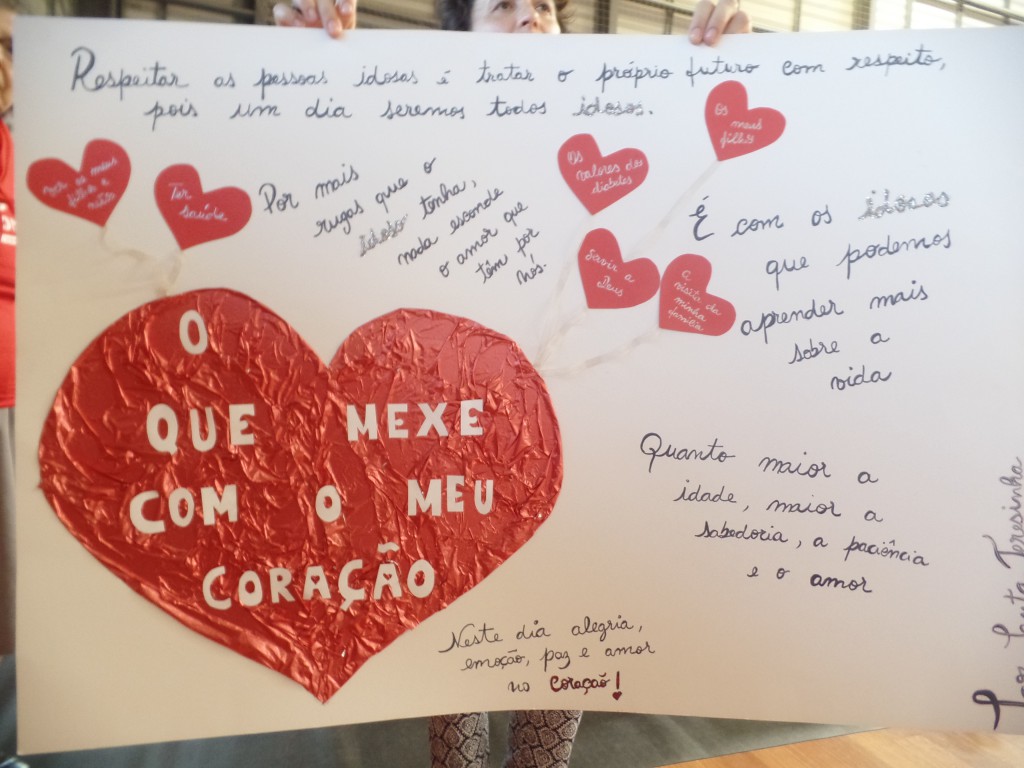 Respeitar as pessoas idosas é tratar o próprio futuro com respeito,
pois um dia seremos todos idosos.
Ver os meus
filhos e
netos
Ter
saúde
Por mais
rugas que o
idoso tenha,
nada esconde
o amor que
têm por
nós.
Os
valores dos
diabetes
Os
meus
filhos
Servir a
Deus
A
visita da
minha
família
É com os idosos
que podemos
aprender mais
sobre a
vida
O
QUE MEXE
COM O MEU
CORAÇÃO
Quanto maior a
idade, maior a
sabedoria, a paciência
e o amor
Neste dia alegria,
emoção, paz e amor
no coração!
Lar Santa Teresinha